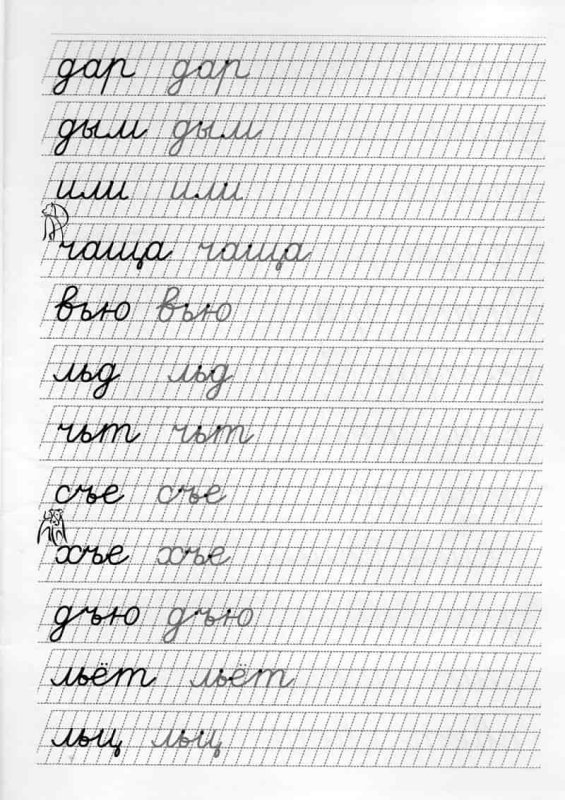 дар дар
дым дым
или или
чаща чаща
вью вью
льд льд
чьт чьт
съе съе
хъе хъе
дъю дъю
льёт льёт
льц льц